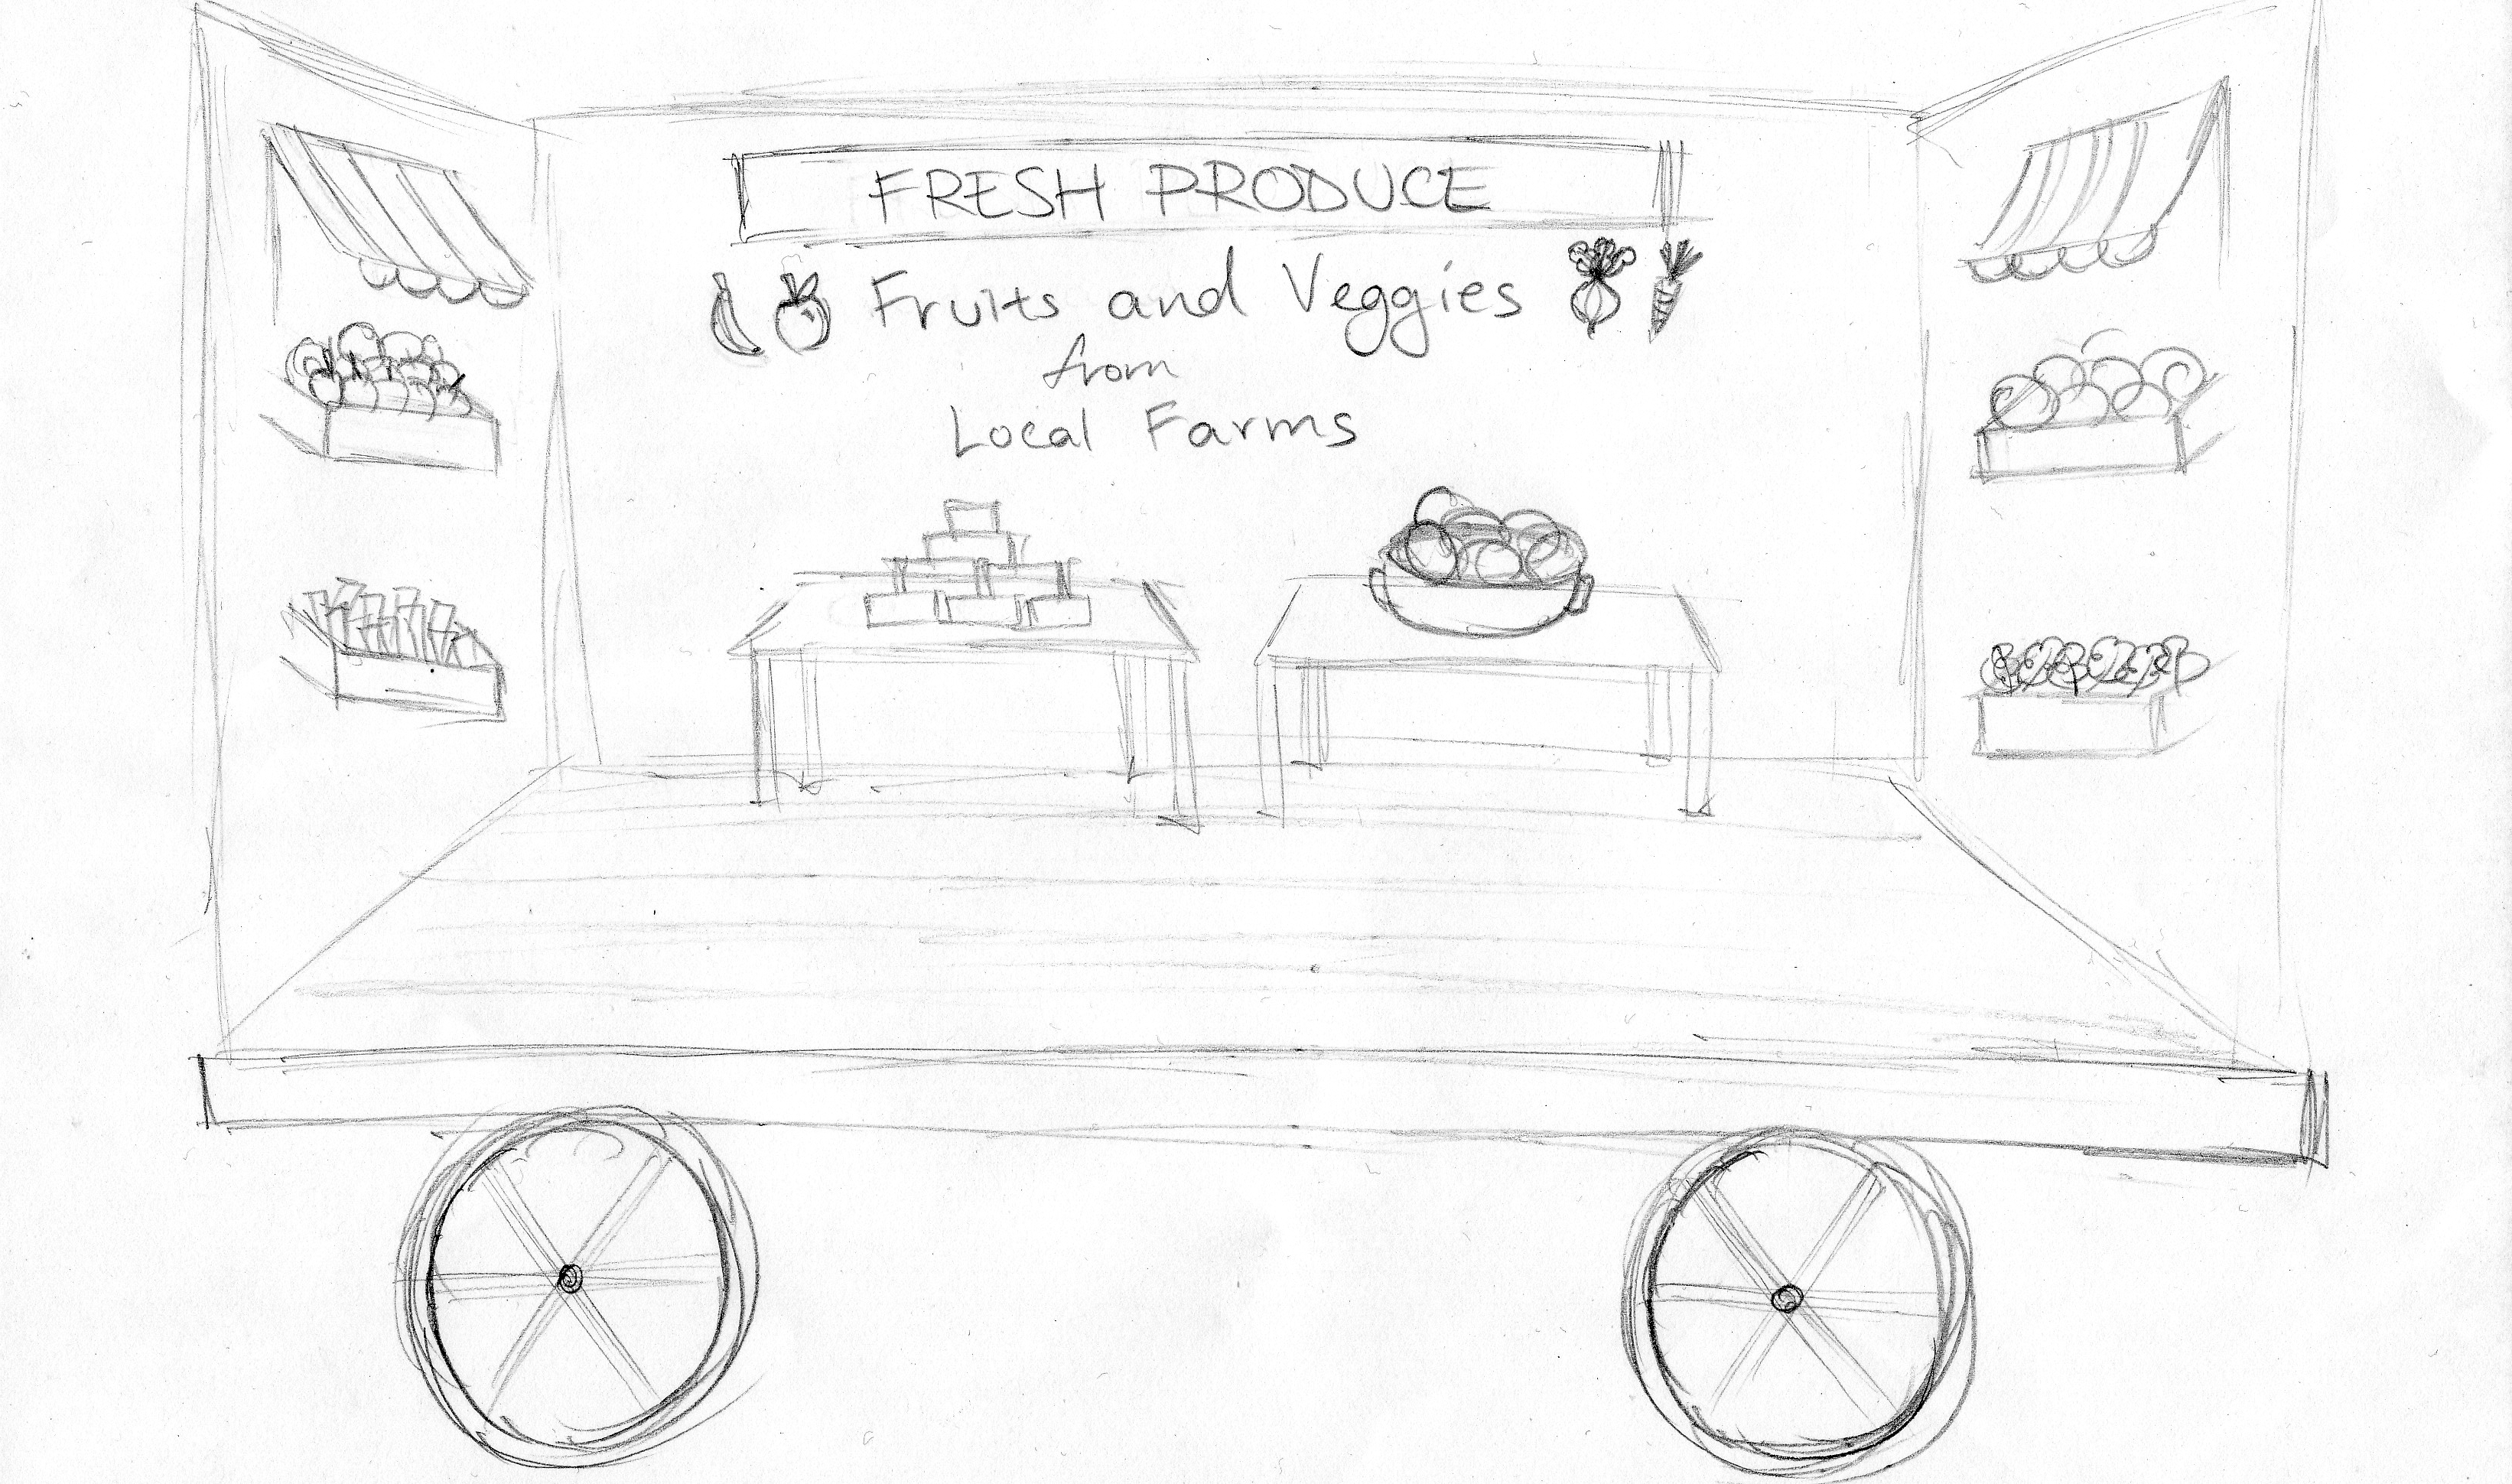 FRESH PRODUCE
Fruits and Veggies
from
Local Farms